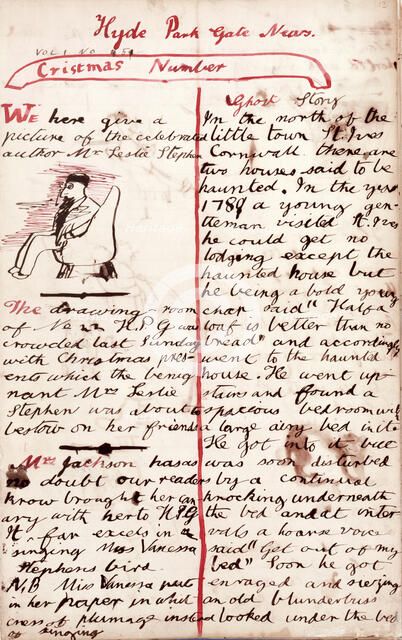 Hyde Park Gate News.
VOL 1 NO 51
Cristmas Number
WE here give a
picture of the celebrated
author Mr Leslie Stephen
The drawing-room
of No 22 H.P.G was
crowded last Sunday
with Christmas pres-
ents which the benig
nant Mrs Leslie
Stephen was about to
bestow on her friends
Mrs Jackson has as
no doubt our readers
know brought her can
ary with her to H.P.G
It far excels in
singing Miss Vanessa
Stephens bird.
N.B Miss Vanessa puts
in her paper in whit
cress of plumage instead
of singing
Ghost Story
In the north of the
little town St. Ives
Cornwall there are
two houses said to be
haunted. In the year
1789 a young gen-
tleman visited St. Ives
he could get no
lodging except the
haunted house but
he being a bold young
chap said "Half a
loaf is better than no
bread" and accordingly
went to the haunted
house. He went up
stairs and found a
spacious bedroom with
a large airy bed in it.
He got into it but
was soon disturbed
by a continual
knocking underneath
the bed and at inter
vals a hoarse voice
said "Get out of my
bed" Soon he got
enraged and seizing
an old blunderbuss
looked under the bed